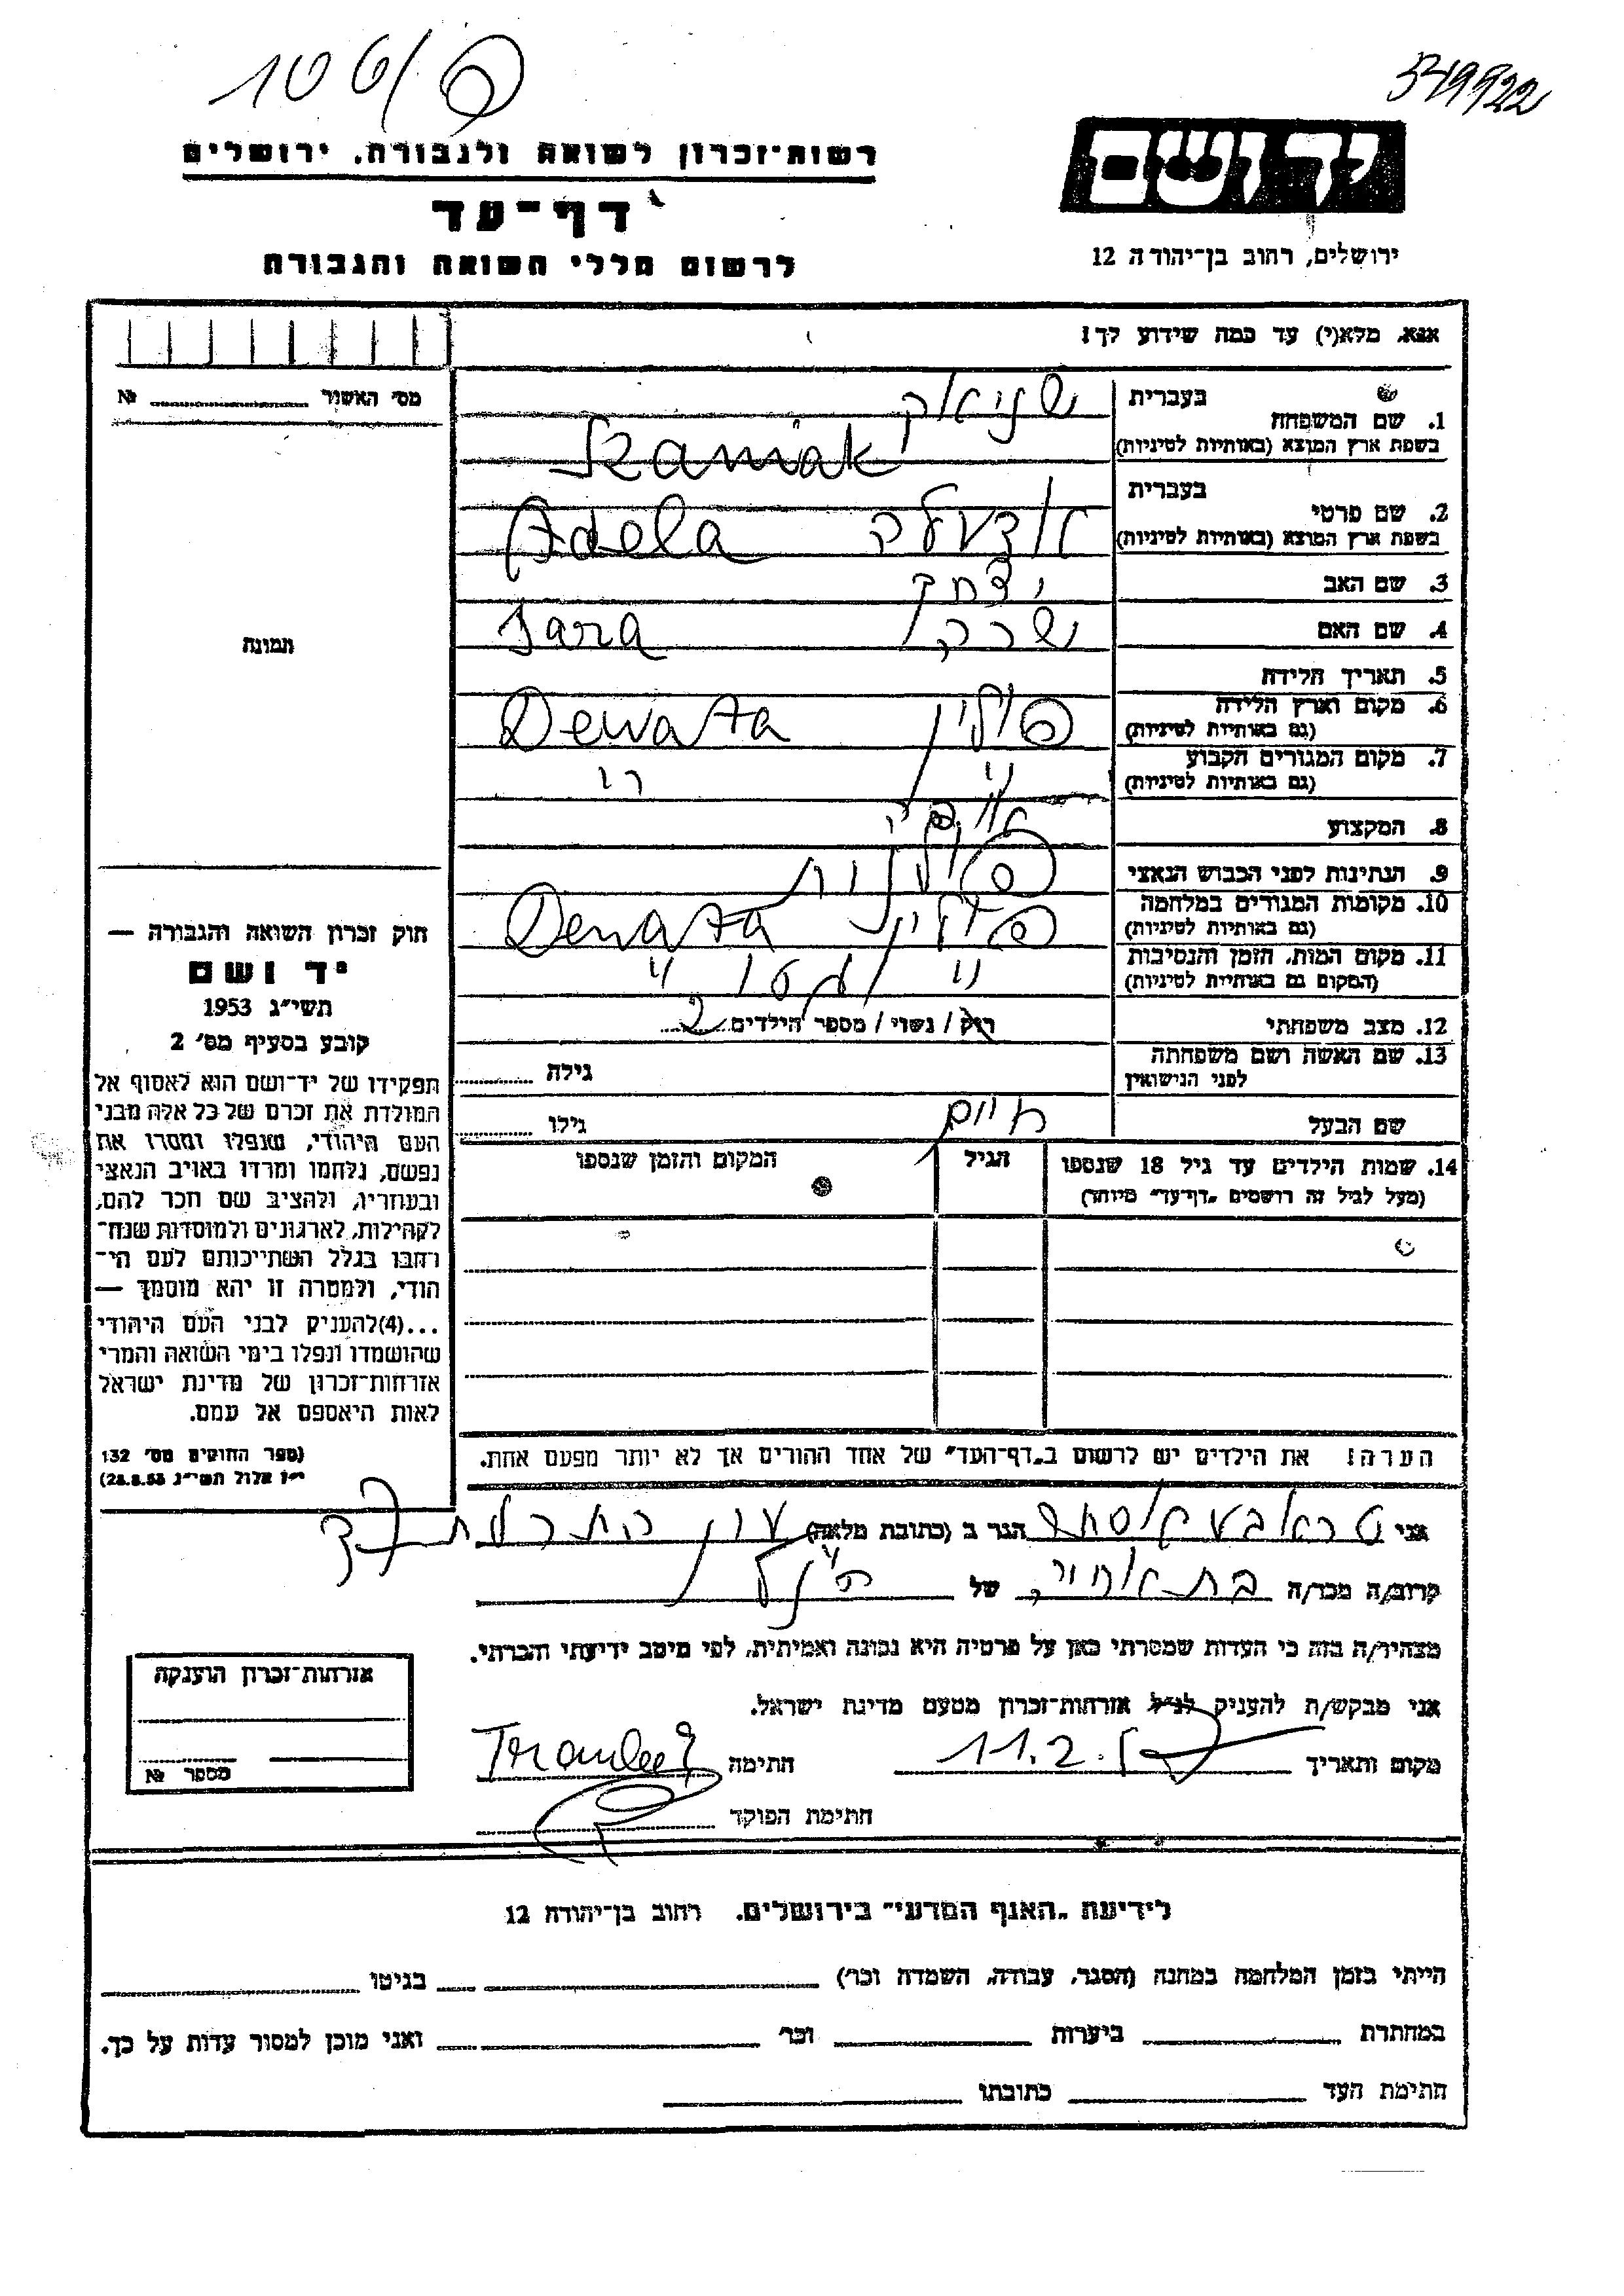 549922
106/פ
יד ושם
ירושלים, רחוב בן־יהודה 12
רשות־זכרון לשואה ולגבורה, ירושלים
דף־עד
לרשום חללי השואה והגבורה
אנא, מלא(י) עד כמה שידוע לך!
מס' האשור № 
1. שם המשפחה
בעברית שניאק
בשפת ארץ המוצא (באותיות לטיניות) Szaniak
2. שם פרטי
בעברית אדעלה
בשפת ארץ המוצא (באותיות לטיניות) Adela
3. שם האב יצחק
4. שם האם שרה Sara
5. תאריך הלידה
6. מקום וארץ הלידה פולין
(גם באותיות לטיניות)
7. מקום המגורים הקבוע " "
(גם באותיות לטיניות)
8. המקצוע
9. הנתינות לפני הכבוש הנאצי פולנית
10. מקומות המגורים במלחמה פולין
(גם באותיות לטיניות)
11. מקום המות, הזמן והנסיבות
(המקום גם באותיות לטיניות)
12. מצב משפחתי רווק / נשוי / מספר הילדים 2
13. שם האשה ושם משפחתה
לפני הנישואין
גילה
שם הבעל חיים גילו
14. שמות הילדים עד גיל 18 שנספו הגיל המקום והזמן שנספו
(מעל לגיל זה רושמים "דף־עד" מיוחד)
הערה! את הילדים יש לרשום ב"דף־העד" של אחד ההורים אך לא יותר מפעם אחת.
תמונה
חוק זכרון השואה והגבורה —
יד ושם
תשי"ג 1953
קובע בסעיף מס' 2
תפקידו של יד־ושם הוא לאסוף אל
המולדת את זכרם של כל אלה מבני
העם היהודי, שנפלו ומסרו את
נפשם, נלחמו ומרדו באויב הנאצי
ובעוזריו, ולהציב שם וזכר להם,
לקהילות, לארגונים ולמוסדות שנח־
רבו בגלל השתייכותם לעם הי־
הודי, ולמטרה זו יהא מוסמך —
...(4)להעניק לבני העם היהודי
שהושמדו ונפלו בימי השואה והמרי
אזרחות־זכרון של מדינת ישראל
לאות היאספם אל עמם.
(ספר החוקים מס' 132
י"ז אלול תשי"ג 28.8.53)
אני הגר ב (כתובת מלאה)
קרוב/ה מכר/ה בת אחיה של הנ"ל
מצהיר/ה בזה כי העדות שמסרתי כאן על פרטיה היא נכונה ואמיתית, לפי מיטב ידיעתי והכרתי.
אני מבקש/ת להעניק לנ"ל אזרחות־זכרון מטעם מדינת ישראל.
מקום ותאריך 11.2 חתימה
חתימת הפוקד
אזרחות־זכרון הוענקה
מספר №
לידיעת "האגף המדעי" בירושלים. רחוב בן־יהודה 12
הייתי בזמן המלחמה במחנה (הסגר, עבודה, השמדה וכו') בגיטו
במחתרת ביערות וכו' ואני מוכן למסור עדות על כך.
חתימת העד כתובתו